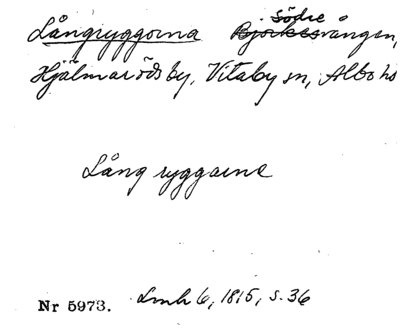 Långryggorna södre Björkesvången,
Hjälmarödsby, Vitaby sn, Albo hs
Lång ryggarne
Nr 5973. Lmh 6, 1815, s. 36